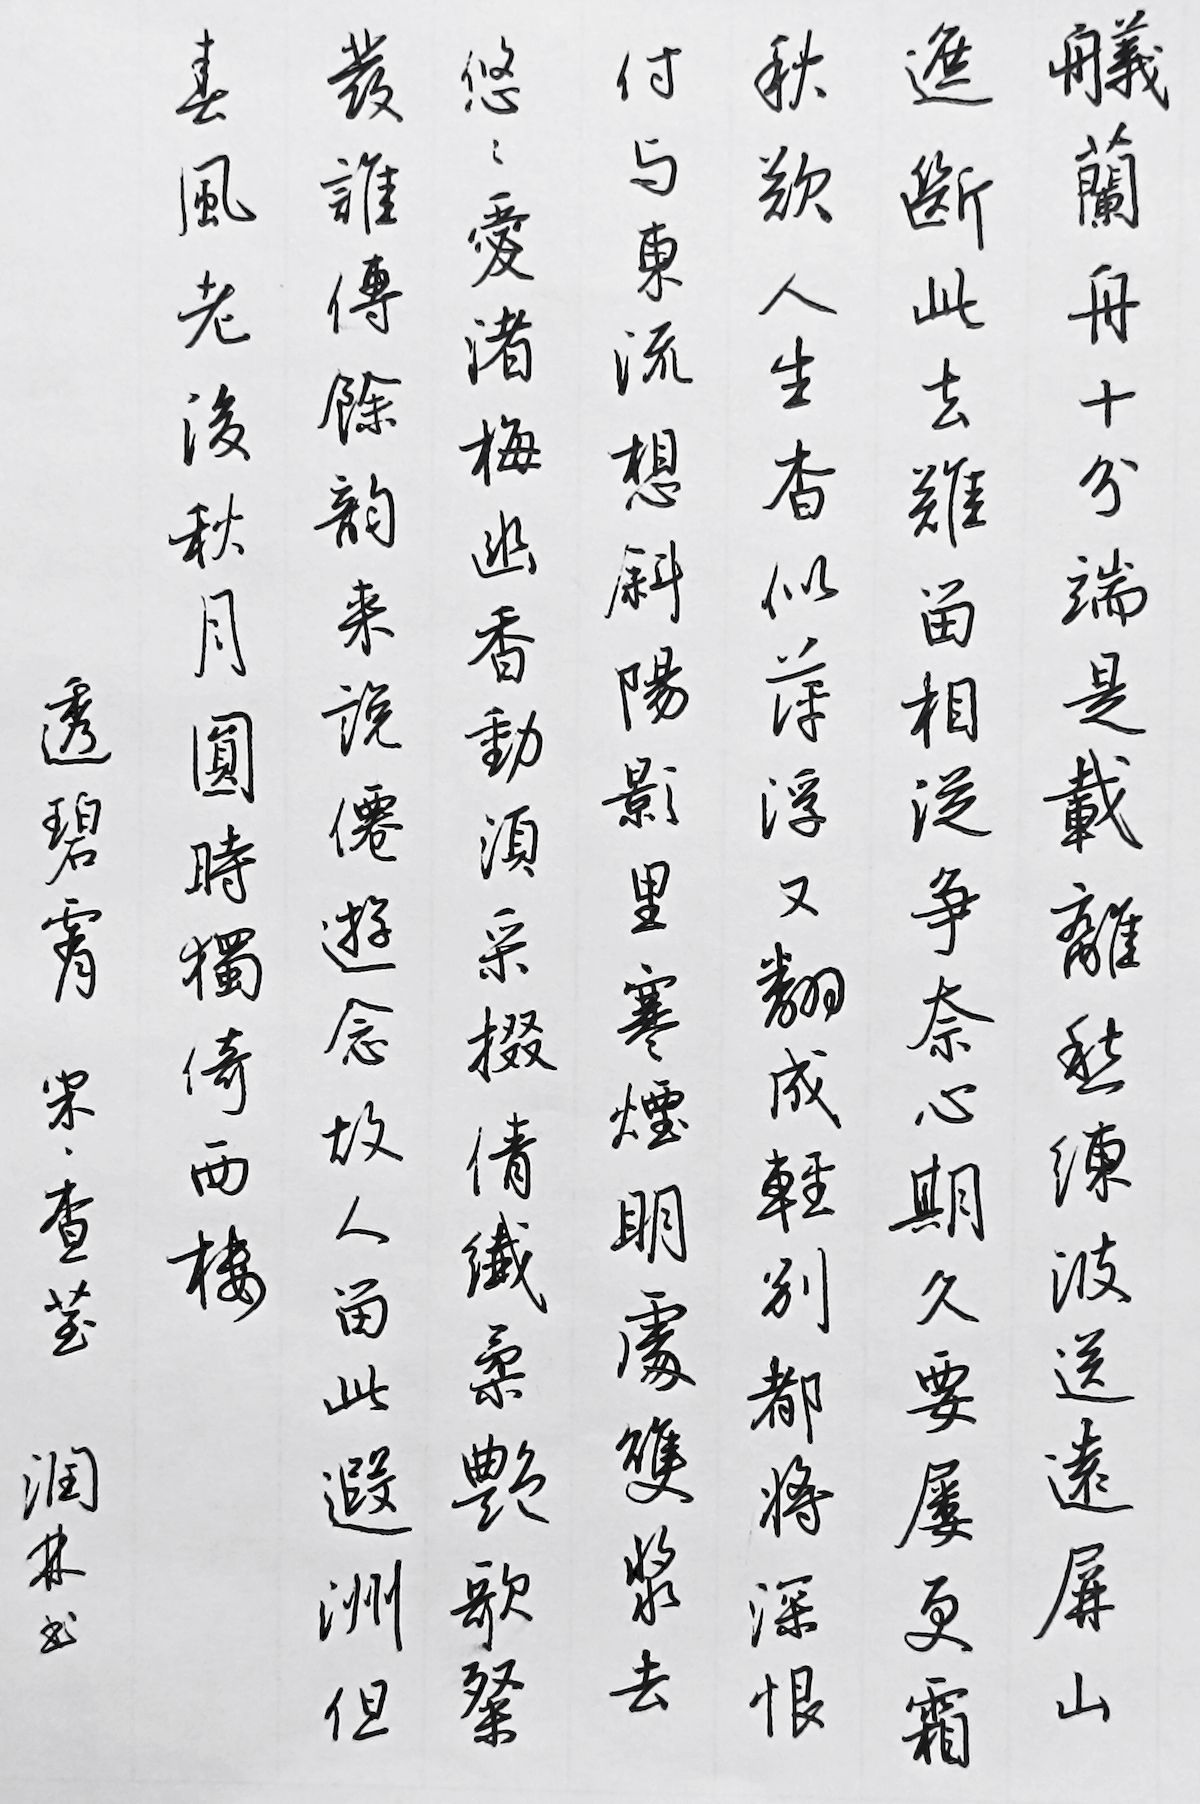 艤蘭舟十分端是載離愁練波送遠屏山
遮斷此去難留相從争奈心期久要屢更霜
秋歎人生杳似萍浮又翻成輕别都將深恨
付与東流想斜陽影里寒煙明處雙槳去
悠〻愛渚梅幽香動須采掇倩纖柔艷歌粲
發誰傳餘韵来説僊遊念故人留此遐洲但
春風老後秋月圓時獨倚西樓
透碧霄 宋、查荎 润林书